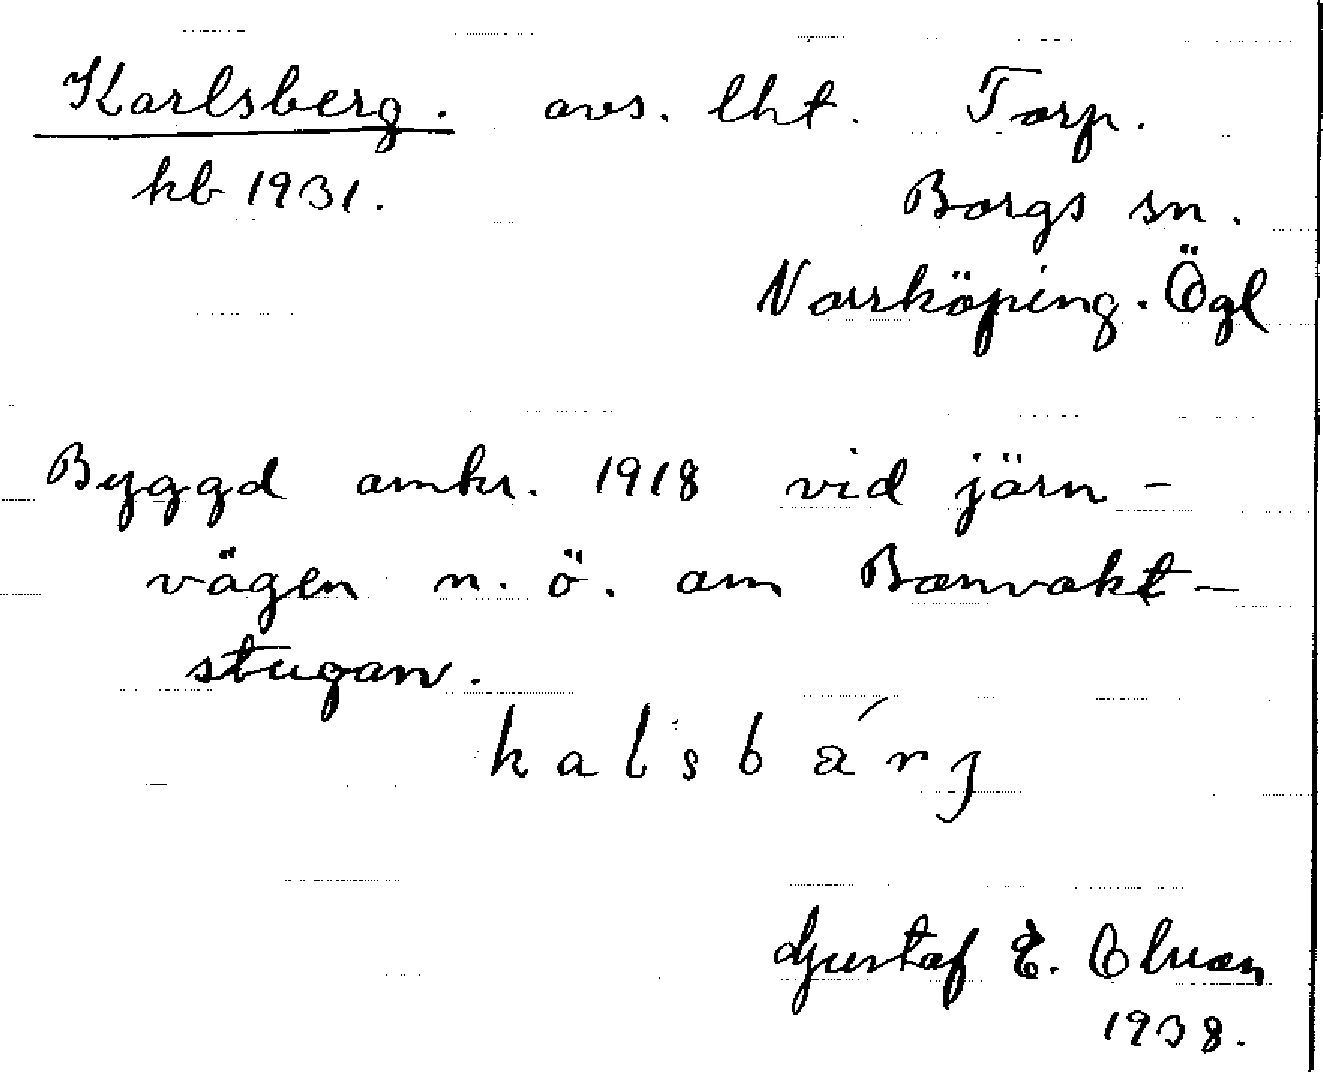 Karlsberg. avs. lht. Torp.
kb 1931. Borgs sn.
Norrköping. Ögl
Byggd omkr. 1918 vid järn-
vägen n. ö. om Banvakt-
stugan.
kalsbärj
Gustaf E.
1938.